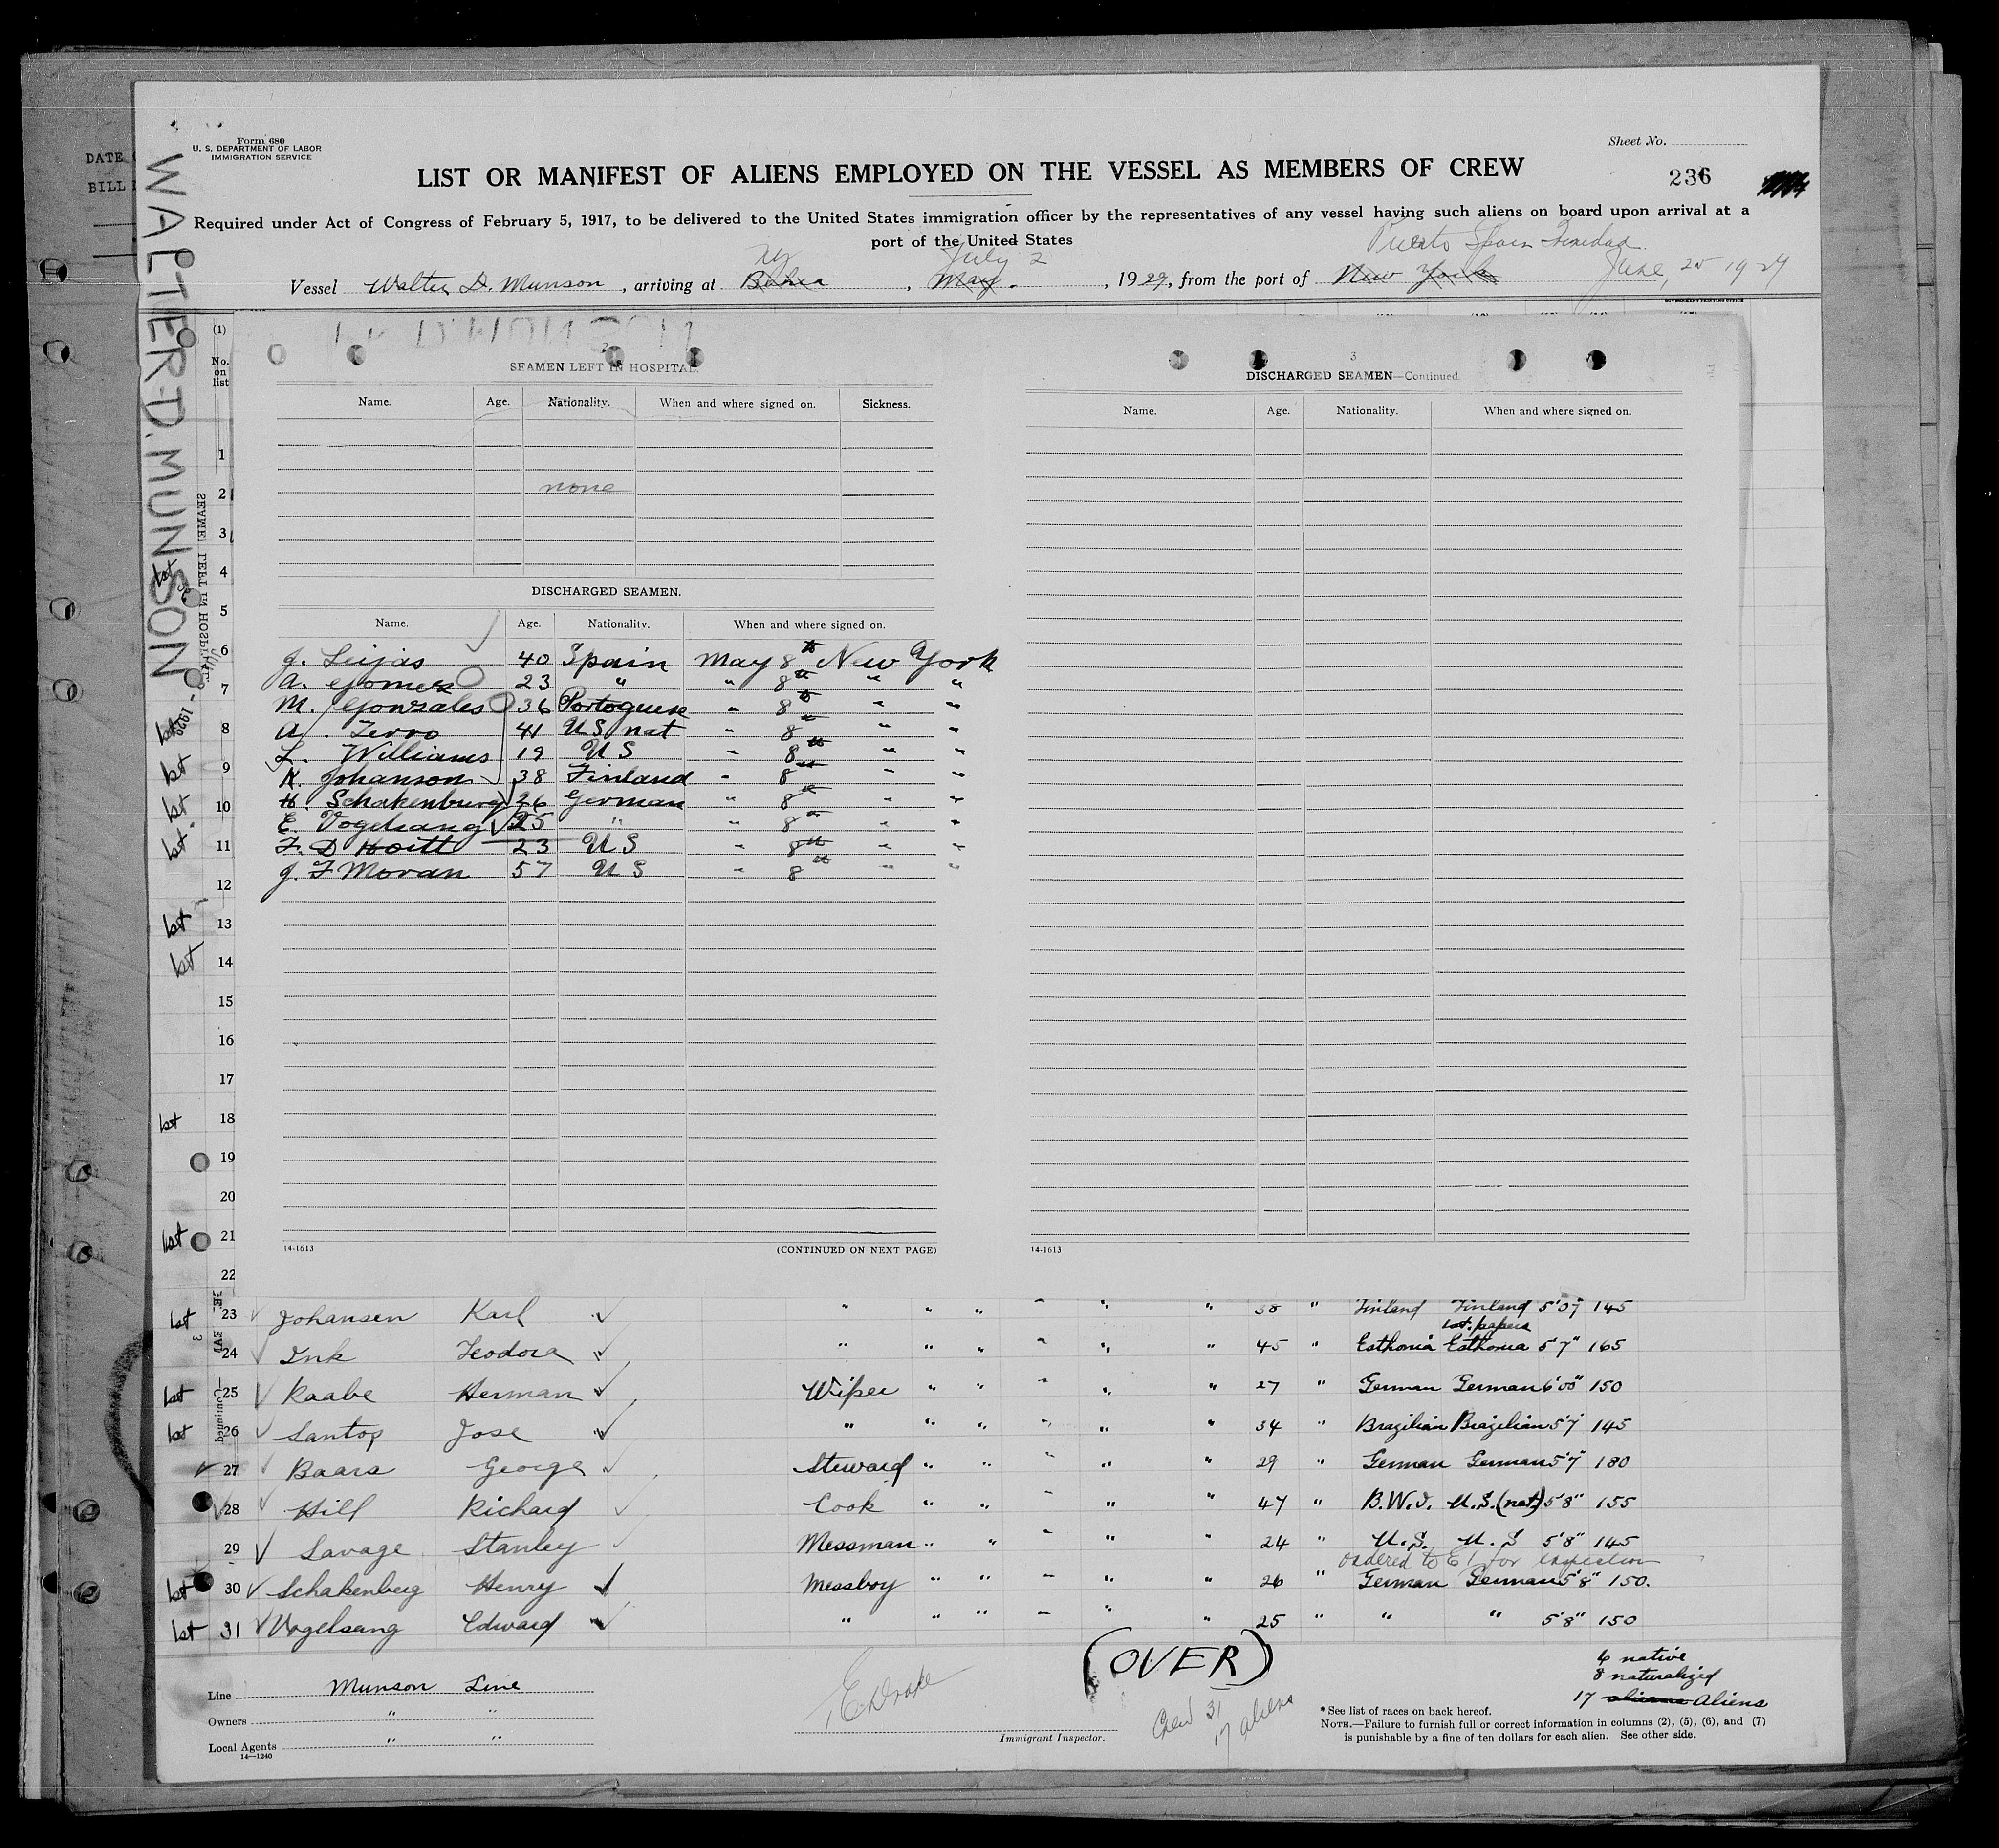 Form 680
U. S. DEPARTMENT OF LABOR
IMMIGRATION SERVICE
Sheet No.
LIST OR MANIFEST OF ALIENS EMPLOYED ON THE VESSEL AS MEMBERS OF CREW
236
Required under Act of Congress of February 5, 1917, to be delivered to the United States immigration officer by the representatives of any vessel having such aliens on board upon arrival at a
port of the United States
NY July 2 Puerto Spain Trinidad
Vessel Walter D. Munson, arriving at Bahia, May., 1929, from the port of New York June, 25 1929
DATE
BILL
WALTER D. MUNSON
GOVERNMENT PRINTING OFFICE
(1)
No. on list
2
SEAMEN LEFT IN HOSPITAL
Name. Age. Nationality. When and where signed on. Sickness.
none
DISCHARGED SEAMEN.
Name. Age. Nationality. When and where signed on.
J. Leijas 40 Spain May 8th New York
A. Gomez 23 " " 8th " "
M. Gonzales 36 Portoguese " 8th " "
A. Ferro 41 US nat " 8th " "
L. Williams 19 US " 8th " "
K. Johanson 38 Finland " 8th " "
H. Schakenburg 26 German " 8th " "
E. Vogelsang 25 " " 8th " "
F. D Hoitt 23 US " 8th " "
J. F Moran 57 US " 8th " "
14-1613 (CONTINUED ON NEXT PAGE)
3
DISCHARGED SEAMEN—Continued
Name. Age. Nationality. When and where signed on.
14-1613
1
2
3
4
5
6
7
8
9
10
11
12
13
14
15
16
17
18
19
20
21
22
1st 23 Johansen Karl " " " " " " 38 " Finland Finland 5'07 145
1st papers
24 Ink Teodora " " " " " " 45 " Esthonia Esthonia 5'7" 165
1st 25 Raabe Herman Wiper " " " " " 27 " German German 6'00" 150
1st 26 Santos Jose " " " " " " 34 " Brazilian Brazilian 5'7 145
27 Baars George Steward " " " " " 29 " German German 5'7" 180
28 Hill Richard Cook " " " " " 47 " B.W.I. U.S.(nat) 5'8" 155
29 Savage Stanley Messman " " " " " 24 " U.S. U.S 5'8" 145
ordered to EI for inspection
1st 30 Schakenberg Henry Messboy " " " " " 26 " German German 5'8" 150.
1st 31 Vogelsang Edward " " " " " " 25 " " " 5'8" 150
(OVER)
6 native
8 naturalized
17 aliens Aliens
Line Munson Line
Owners " "
Local Agents " "
14—1240
E Drake
Immigrant Inspector.
Crew 31
17 aliens
*See list of races on back hereof.
NOTE.—Failure to furnish full or correct information in columns (2), (5), (6), and (7)
is punishable by a fine of ten dollars for each alien. See other side.